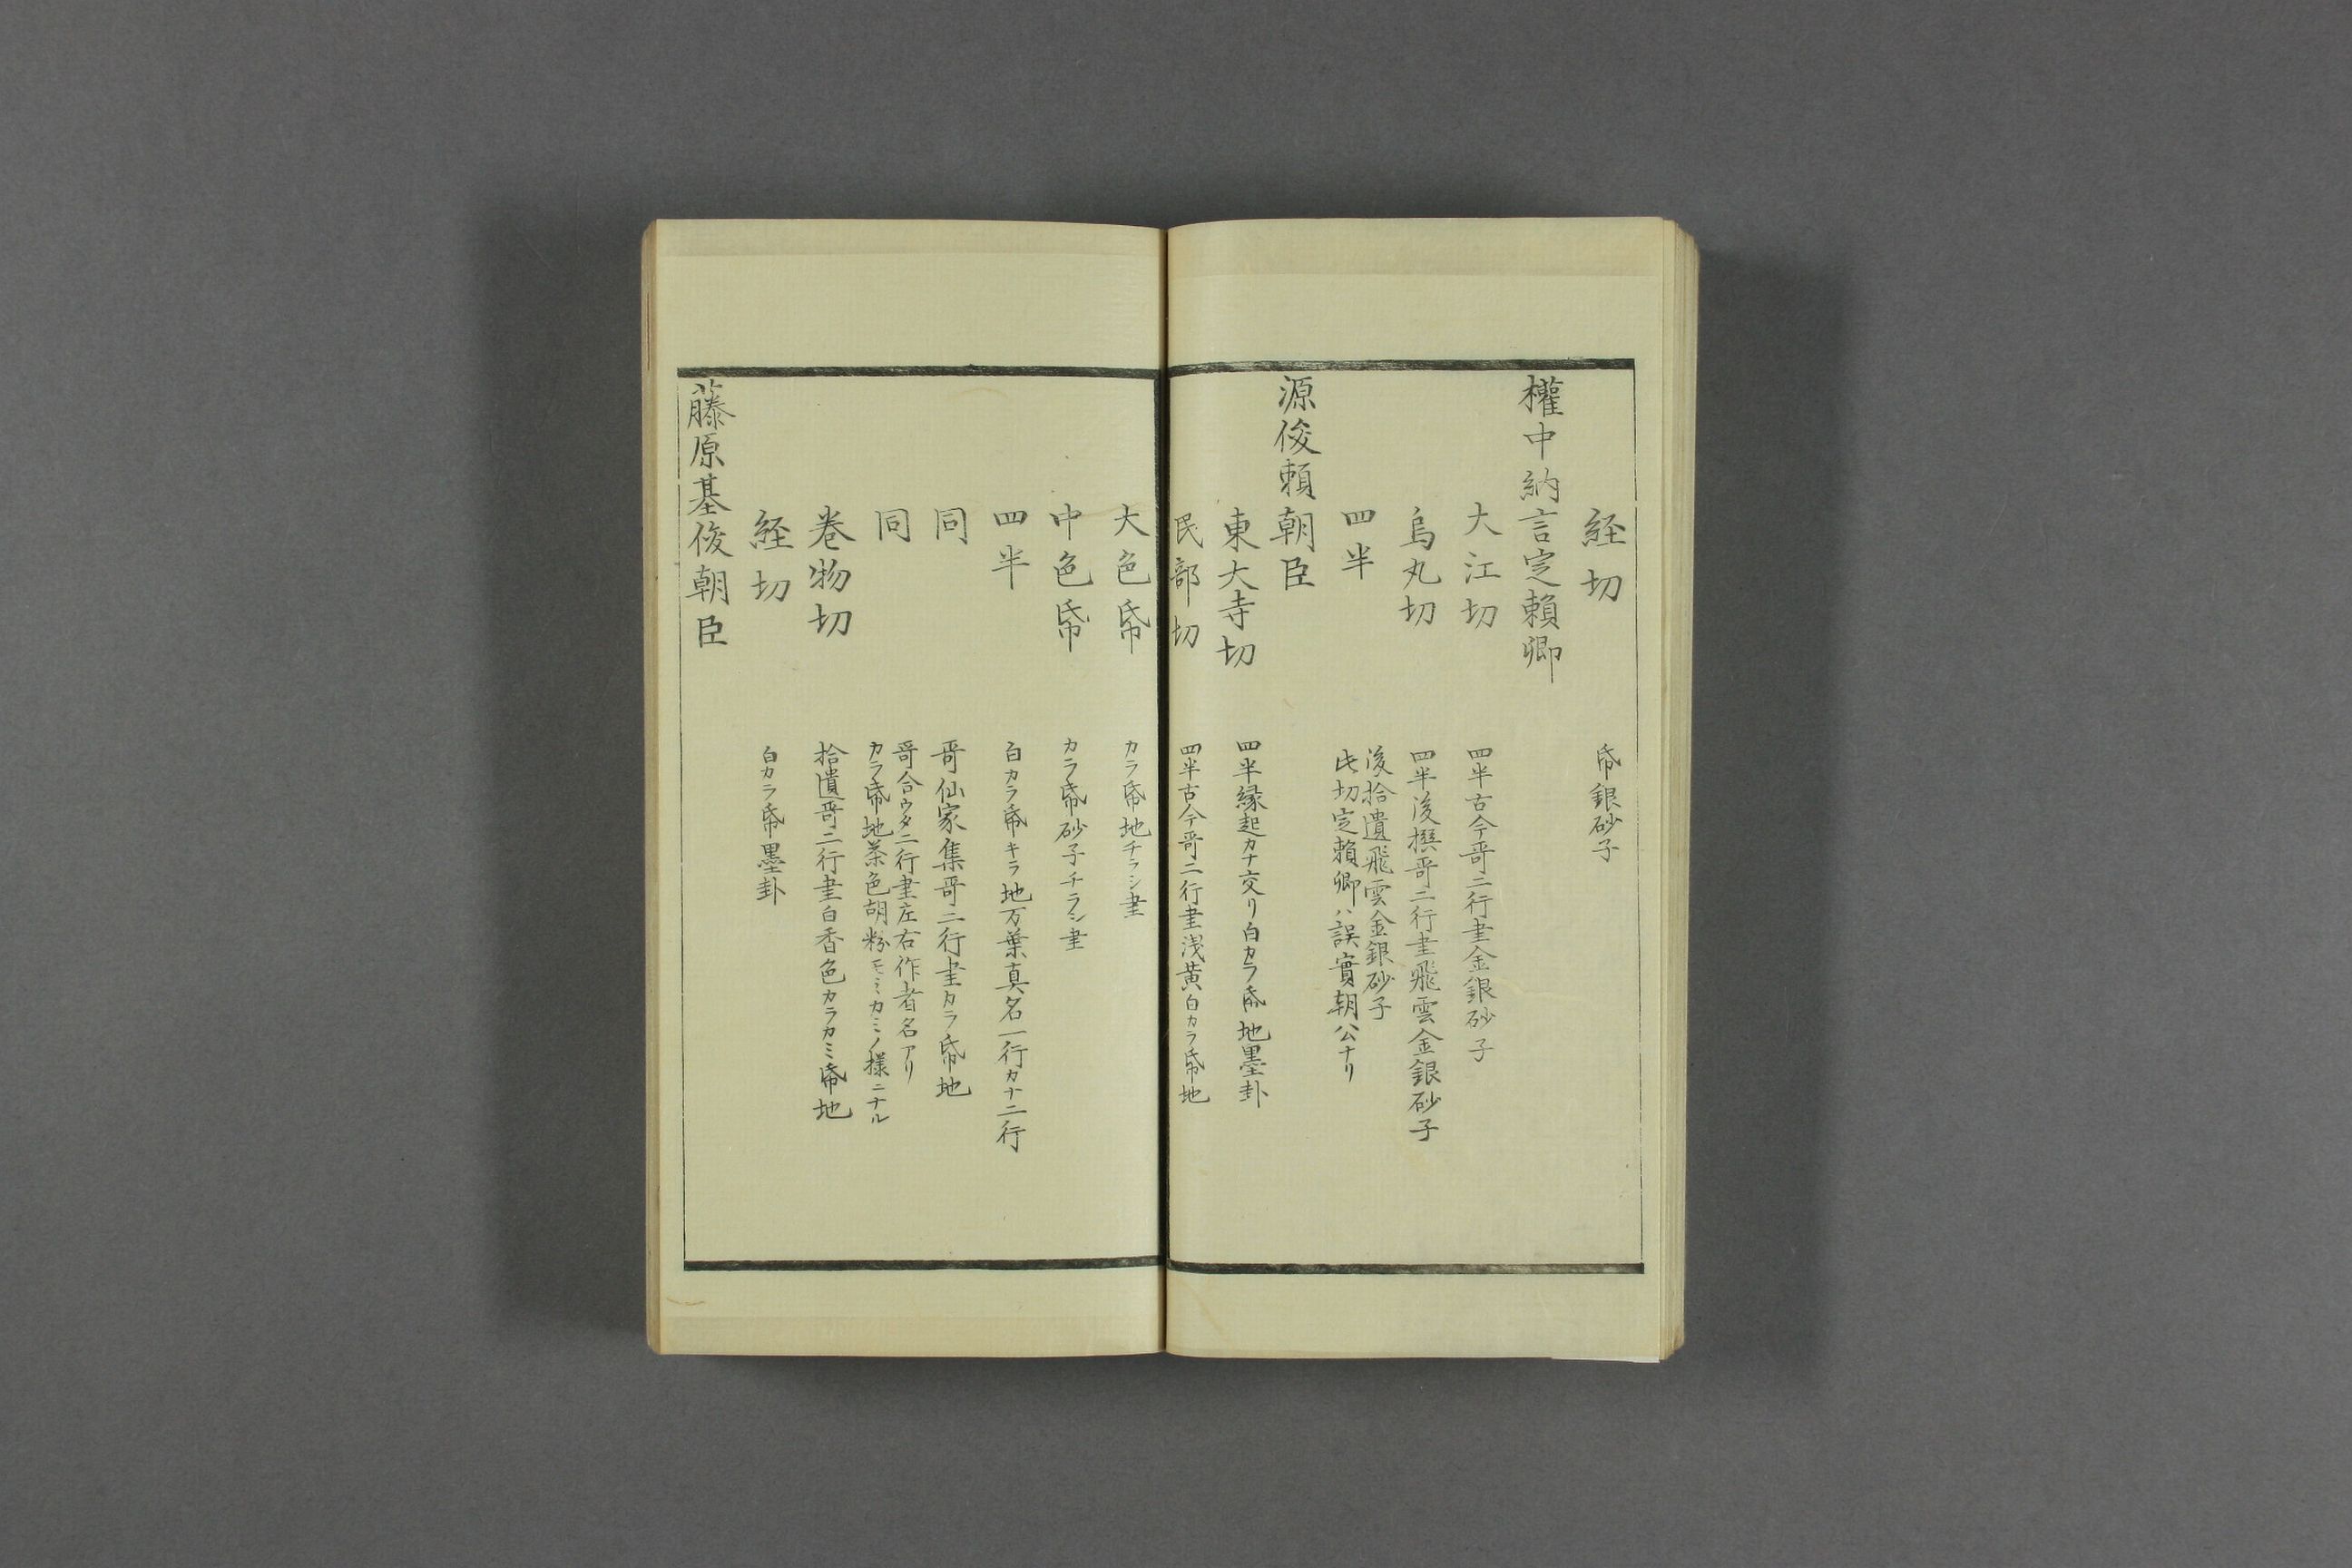 経切 帋銀砂子
權中納言定頼卿
大江切 四半古今哥二行書金銀砂子
烏丸切 四半後撰哥二行書飛雲金銀砂子
四半 後拾遺飛雲金銀砂子
此切定頼卿ハ誤實朝公ナリ
源俊頼朝臣
東大寺切 四半縁起カナ交リ白カラ帋地墨卦
民部切 四半古今哥二行書浅黄白カラ帋地
大色帋 カラ帋地チラシ書
中色帋 カラ帋砂子チラシ書
四半 白カラ帋キラ地万葉真名一行カナ二行
同 哥仙家集哥二行書カラ帋地
同 哥合ウタ二行書左右作者名アリ
カラ帋地茶色胡粉モミカミノ様ニナル
巻物切 拾遺哥二行書白香色カラカミ帋地
経切 白カラ帋墨卦
藤原基俊朝臣